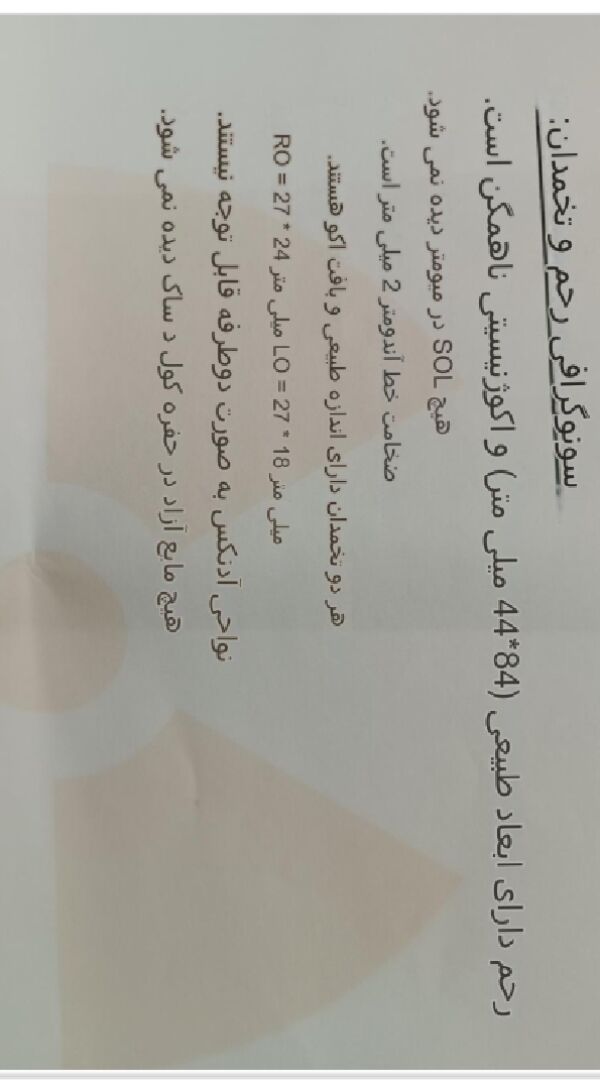 سونوگرافی رحم و تخمدان:
رحم دارای ابعاد طبیعی (84*44 میلی متر) و اکوژنیسیتی ناهمگن است.
هیچ SOL در میومتر دیده نمی شود.
ضخامت خط آندومتر 2 میلی متر است.
هر دو تخمدان دارای اندازه طبیعی و بافت اکو هستند.
RO = 27 * 24 میلی متر LO = 27 * 18 میلی متر
نواحی آدنکس به صورت دوطرفه قابل توجه نیستند.
هیچ مایع آزاد در حفره کول د ساک دیده نمی شود.